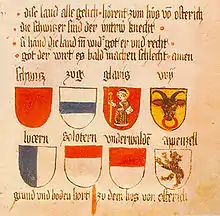 dise land alle gelich hörent zům hus vō österich
die schwitzer sind der untrw knecht
si hand die land īn wid got er und recht
got der wirt es bald machen schlecht amen
schwitz zvg glaris vry
lucern solotern underwaldē apenzell
grund und boden hört zů dem hus von österich